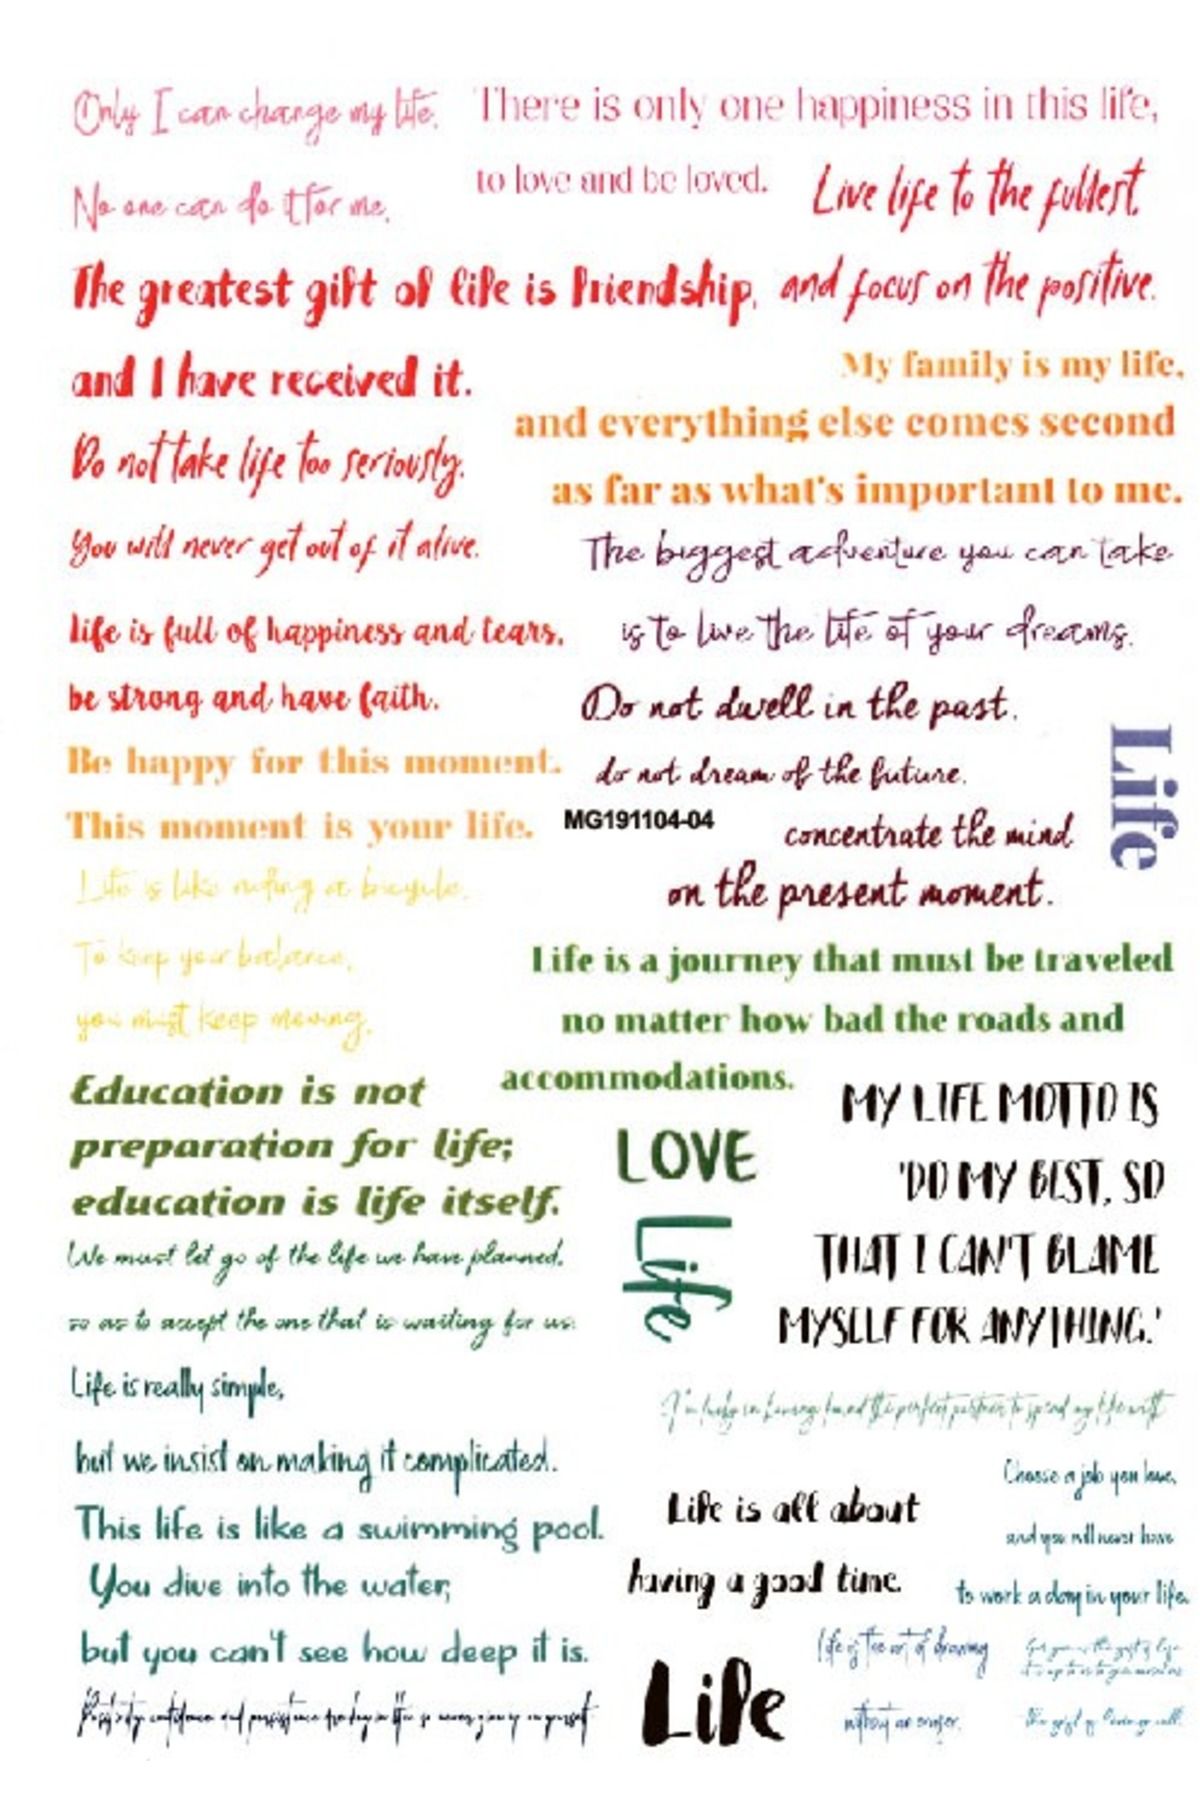 Only I can change my life.
No one can do it for me.
There is only one happiness in this life,
to love and be loved.
Live life to the fullest,
and focus on the positive.
The greatest gift of life is friendship,
and I have received it.
My family is my life,
and everything else comes second
as far as what's important to me.
Do not take life too seriously.
You will never get out of it alive.
The biggest adventure you can take
is to live the life of your dreams.
life is full of happiness and tears,
be strong and have faith.
Do not dwell in the past.
do not dream of the future.
concentrate the mind
on the present moment.
Life
Be happy for this moment.
This moment is your life.
MG191104-04
Life is like riding a bicycle.
To keep your balance,
you must keep moving.
Life is a journey that must be traveled
no matter how bad the roads and
accommodations.
Education is not
preparation for life;
education is life itself.
LOVE
Life
MY LIFE MOTTO IS
'DO MY BEST, SO
THAT I CAN'T BLAME
MYSELF FOR ANYTHING.'
We must let go of the life we have planned,
so as to accept the one that is waiting for us.
Life is really simple,
but we insist on making it complicated.
I'm lucky in having found the perfect partner to spend my life with
This life is like a swimming pool.
You dive into the water,
but you can't see how deep it is.
Life is all about
having a good time.
Choose a job you love,
and you will never have
to work a day in your life.
Positivity, confidence and persistence are key in life, so never give up on yourself
Life
life is the art of drawing
without an eraser.